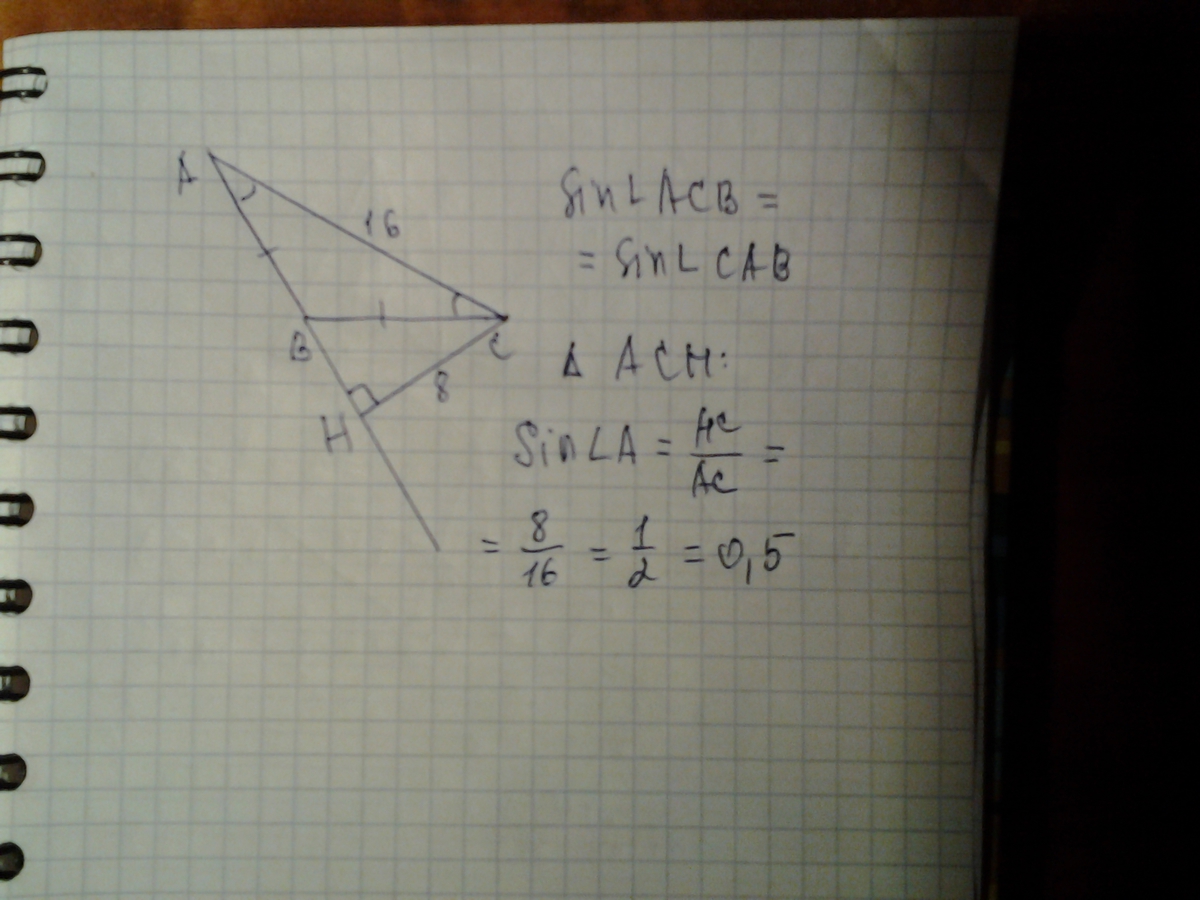 A
16
B
C
8
H
Sin∠ACB =
= Sin∠CAB
Δ ACH:
Sin∠A = HC/AC =
= 8/16 = 1/2 = 0,5